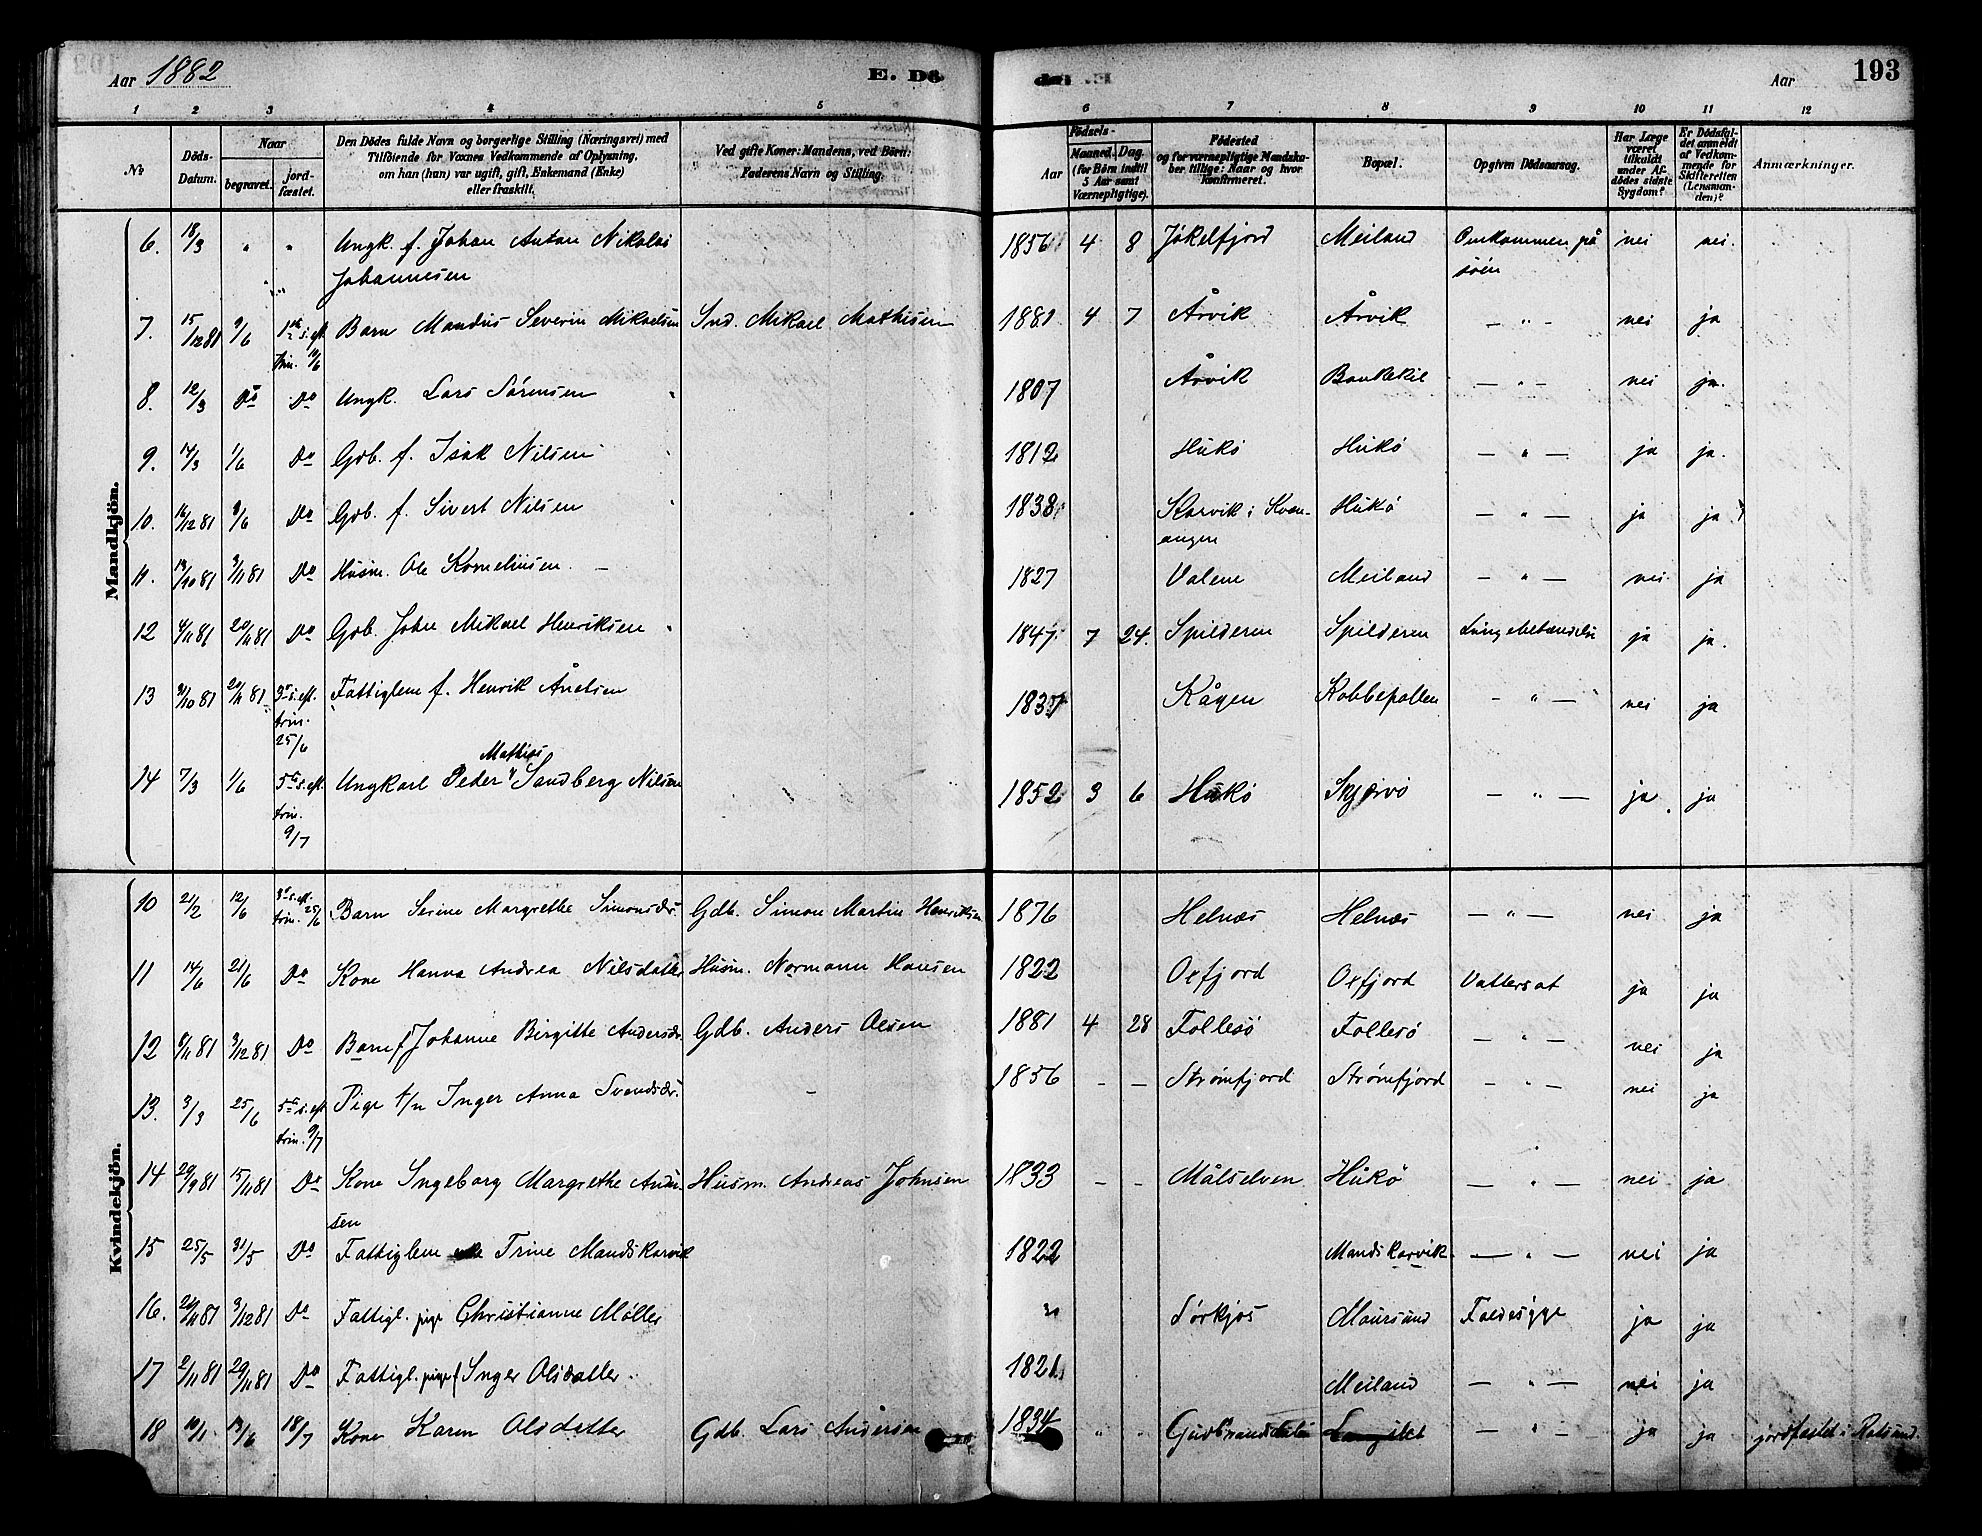 Aar 1882
E. Dö
193
Aar
1 2 3 4 5 6 7 8 9 10 11 12
No
Döds-Datum.
Naar
begravet.
jord-fæstet.
Den Dödes fulde Navn og borgerlige Stilling (Næringsvei) med
Tilföiende for Voxnes Vedkommende af Oplysning,
om han (hun) var ugift, gift, Enkemand (Enke)
eller fraskilt.
Ved gifte Koner: Mandens, ved Börn:
Faderens Navn og Stilling.
Födsels-
Aar
Maaned. Dag
(for Børn indtil
5 Aar samt
Værnepligtige).
Födested
og for værnepligtige Mandska-
ber tillige: Naar og hvor
konfirmeret.
Bopæl.
Opgiven Dödsaarsag.
Har Læge
været
tilkaldt
under Af-
dødes sidste
Sygdom?
Er Dödsfal-
det anmeldt
af Vedkom-
mende for
Skifteretten
(Lensman-
den)?
Anmærkninger.
Mandkjön.
6. 18/3 " " Ungk. f. Johan Anton Nikolai 1856 4 8 Jökelfjord Meiland Omkommen på nei nei.
Johannesen söen
7. 15/12 81 9/6 1ste s. eft. Barn Mandus Severin Mikaelsen Ind. Mikael Mathisen 1881 4 7 Årvik Årvik — " — nei ja
trin. 11/6
8. 12/3 Do Do Ungk. Lars Sörensen 1807 Årvik Baukekil — " — nei ja.
9. 14/3 1/6 Do Gdb. f. Isak Nilsen 1812 Hukö Hukö — " — ja ja.
10. 16/12 81 9/6 Do Gdb. f. Sivert Nilsen 1838 Karvik i Kvæn- Hukö — " — ja ja
angen
11. 19/10 81 3/11 81 Do Husm. Ole Korneliusen. — 1827 Valene Meiland — " — nei ja
12 4/11 81 20/11 81 Do Gdb. John Mikael Henriksen 1847 7 24. Spilderen Spilderen Lungebetændelse ja ja.
13 9/10 81 20/11 81 3die s. eft. Fattiglem f. Henrik Ånetsen 1837 Kågen Kobbepollen — " — nei ja
trin.
25/6
Mathias
14 7/3 1/6 5te s. eft. Ungkarl Peder Sandberg Nilsen 1852 3 6 Hukö Skjervö — " — ja ja
trin.
9/7
Kvindekjön.
10 21/2 12/6 3die s. eft. Barn Serine Margrethe Simonsdr. Gdb. Simon Martin Henriksen 1876 Helnæs Helnæs — " — nei ja
trin. 25/6
11 14/6 21/6 Do Kone Hanna Andrea Nilsdatter Husm. Normann Hansen 1822 Oxfjord Oxfjord Vattersot ja ja
12 9/11 81 3/12 81 Do Barn f Johanne Birgitte Andersdr. Gdb. Anders Olsen 1881 4 28 Follesö Follesö — " — nei ja
13. 3/3 25/6 5te s. eft. Pige f/n Inger Anna Svendsdr. — 1856 — — Strömfjord Strömfjord — " — nei ja
trin. 9/7
14 29/9 81 15/11 81 Do Kone Ingeborg Margrethe Andr- Husm. Andreas Johnsen 1833 — — Målselven Hukö — " — nei ja
sen
15 25/5 31/5 Do Fattiglem Trine Mandskarvik 1822 Mandskarvik — " — nei ja
16. 20/11 81 3/12 81 Do Fattigl. pige Christianne Möller Sörkjos Maursund Faldesyge ja ja
17 2/11 81 29/11 81 Do Fattigl. pige f Inger Olsdatter. 1821 Meiland — " — nei ja
18 10/1 13/6 18/7 Kone Karen Olsdatter Gdb. Lars Andersen 1834 " " Gudbrandsdalen Langslet — " — ja ja jordfæstet i Rotsund.